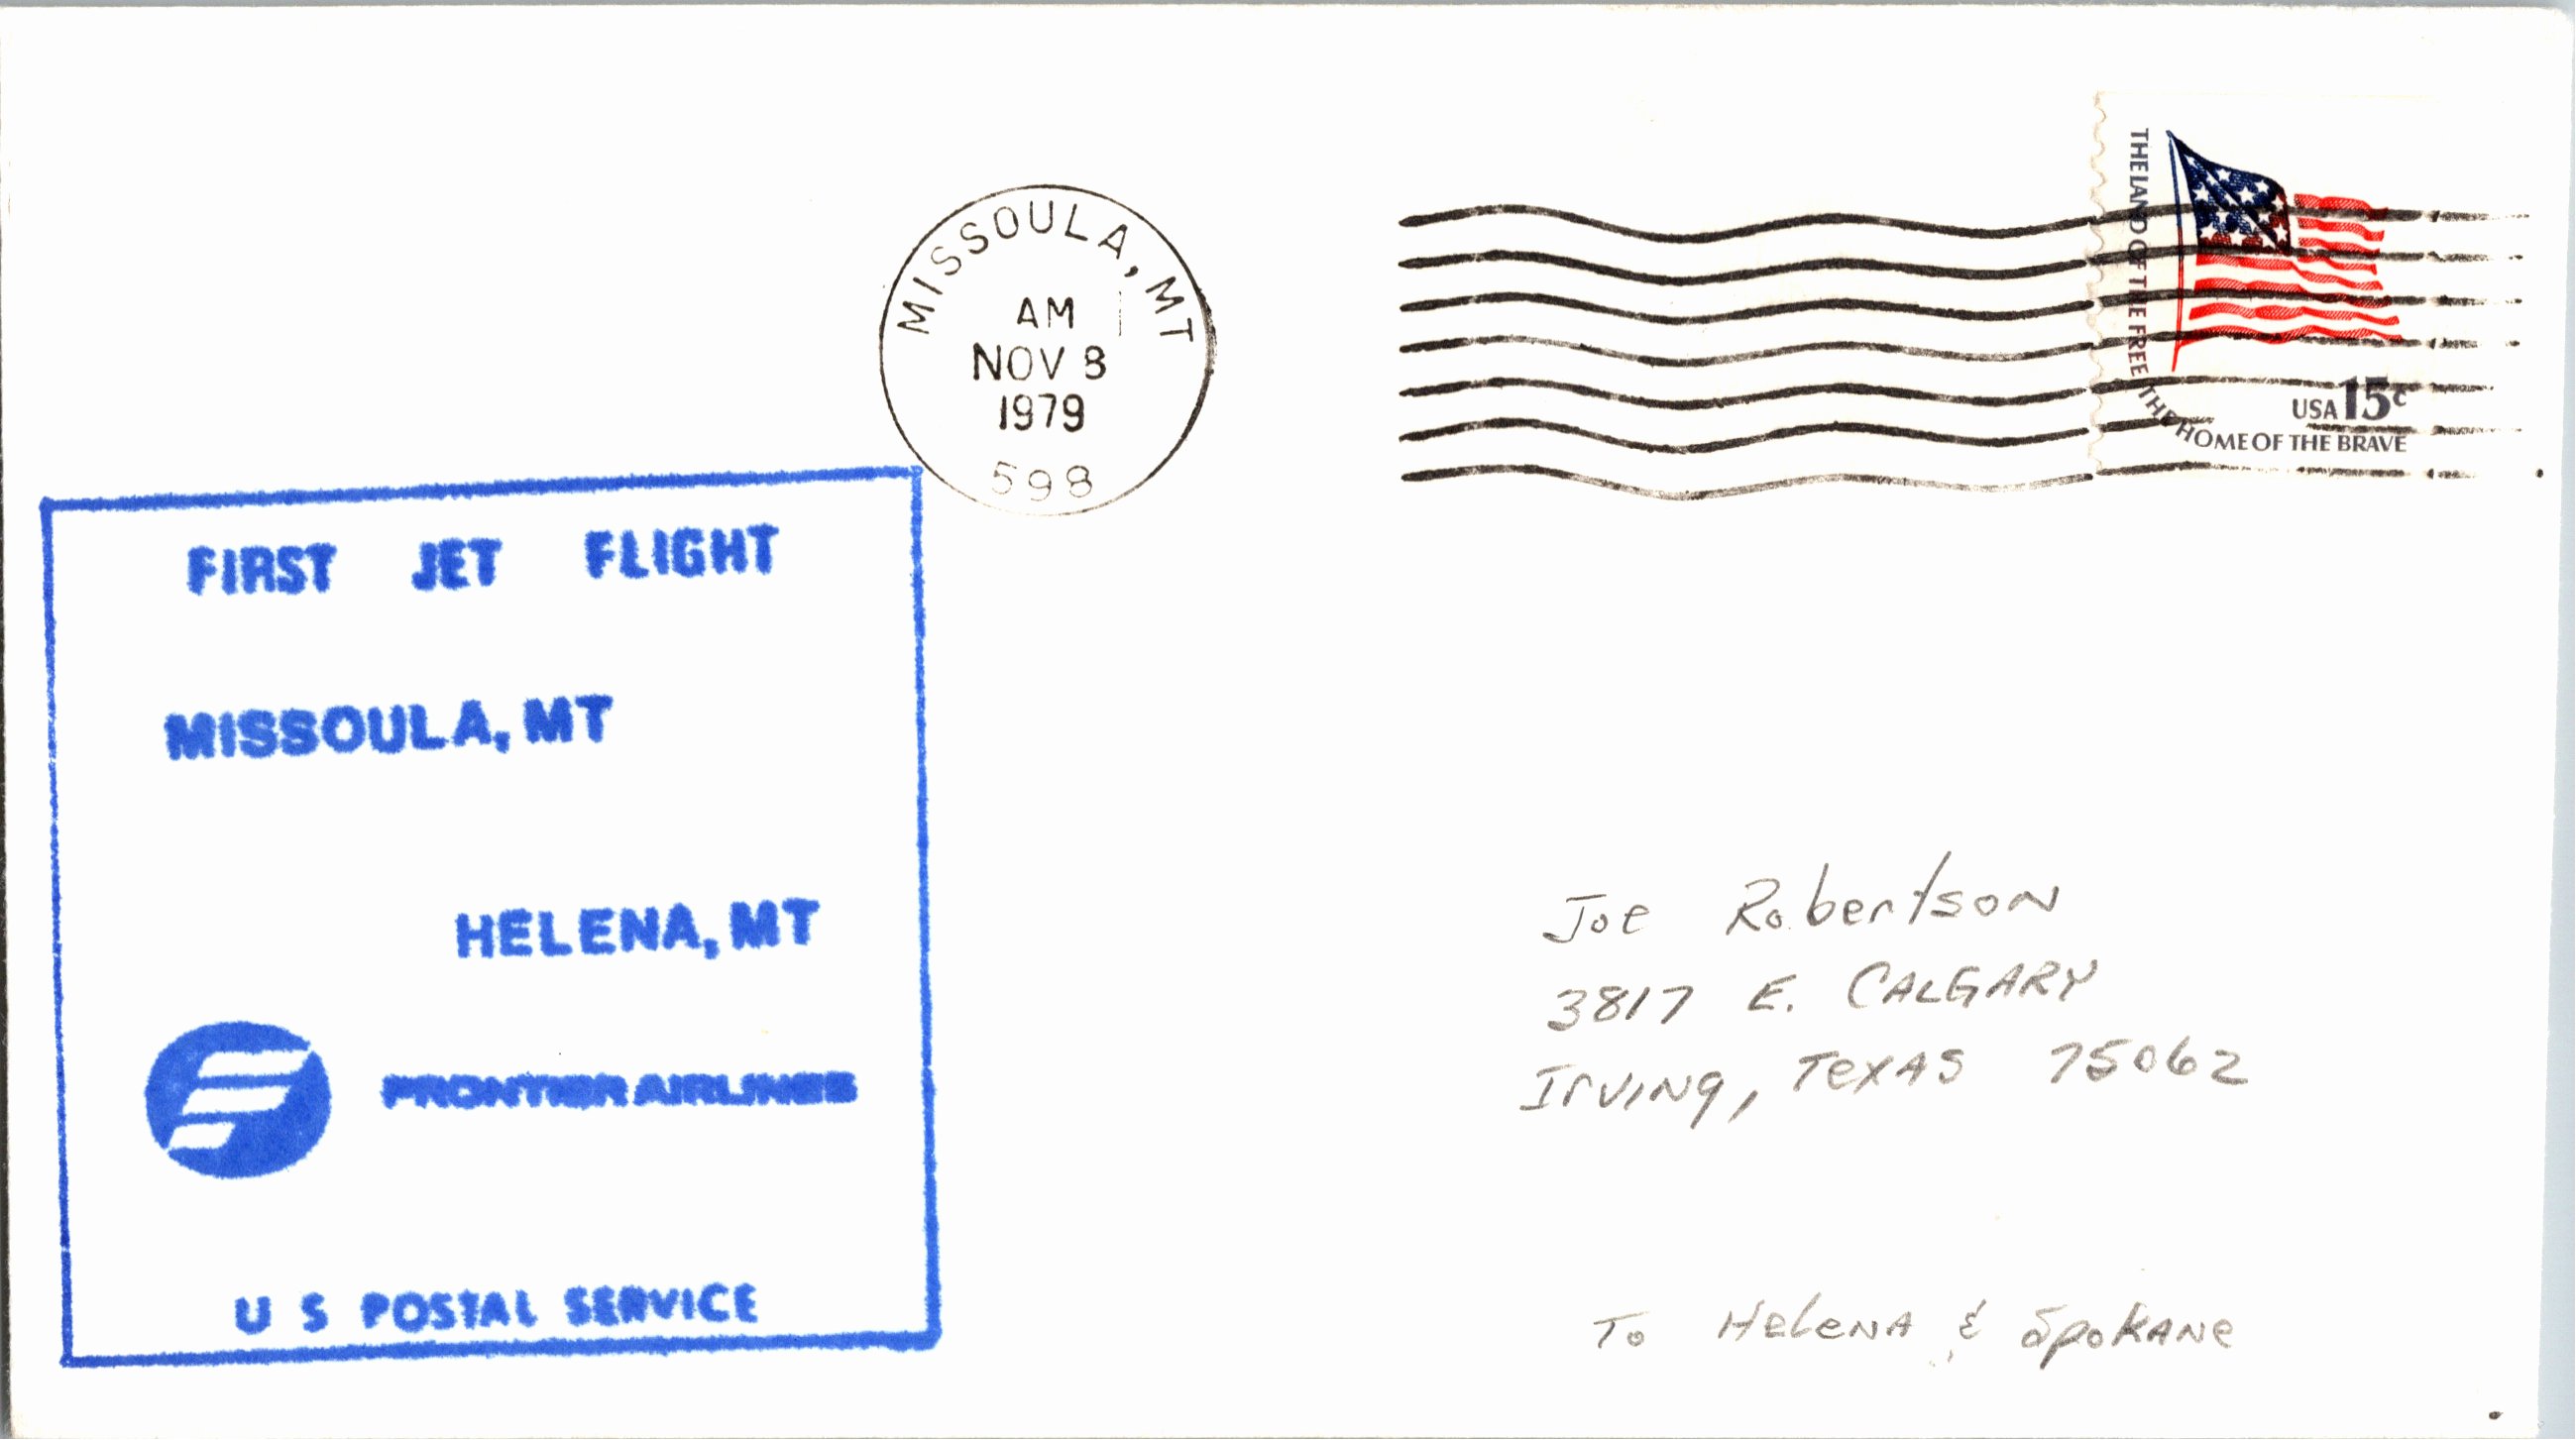 MISSOULA, MT
AM
NOV 8
1979
598
THE LAND OF THE FREE THE HOME OF THE BRAVE
USA 15c
FIRST JET FLIGHT
MISSOULA, MT
HELENA, MT
FRONTIER AIRLINES
U S POSTAL SERVICE
Joe Robertson
3817 E. CALGARY
Irving, Texas 75062
To Helena & Spokane